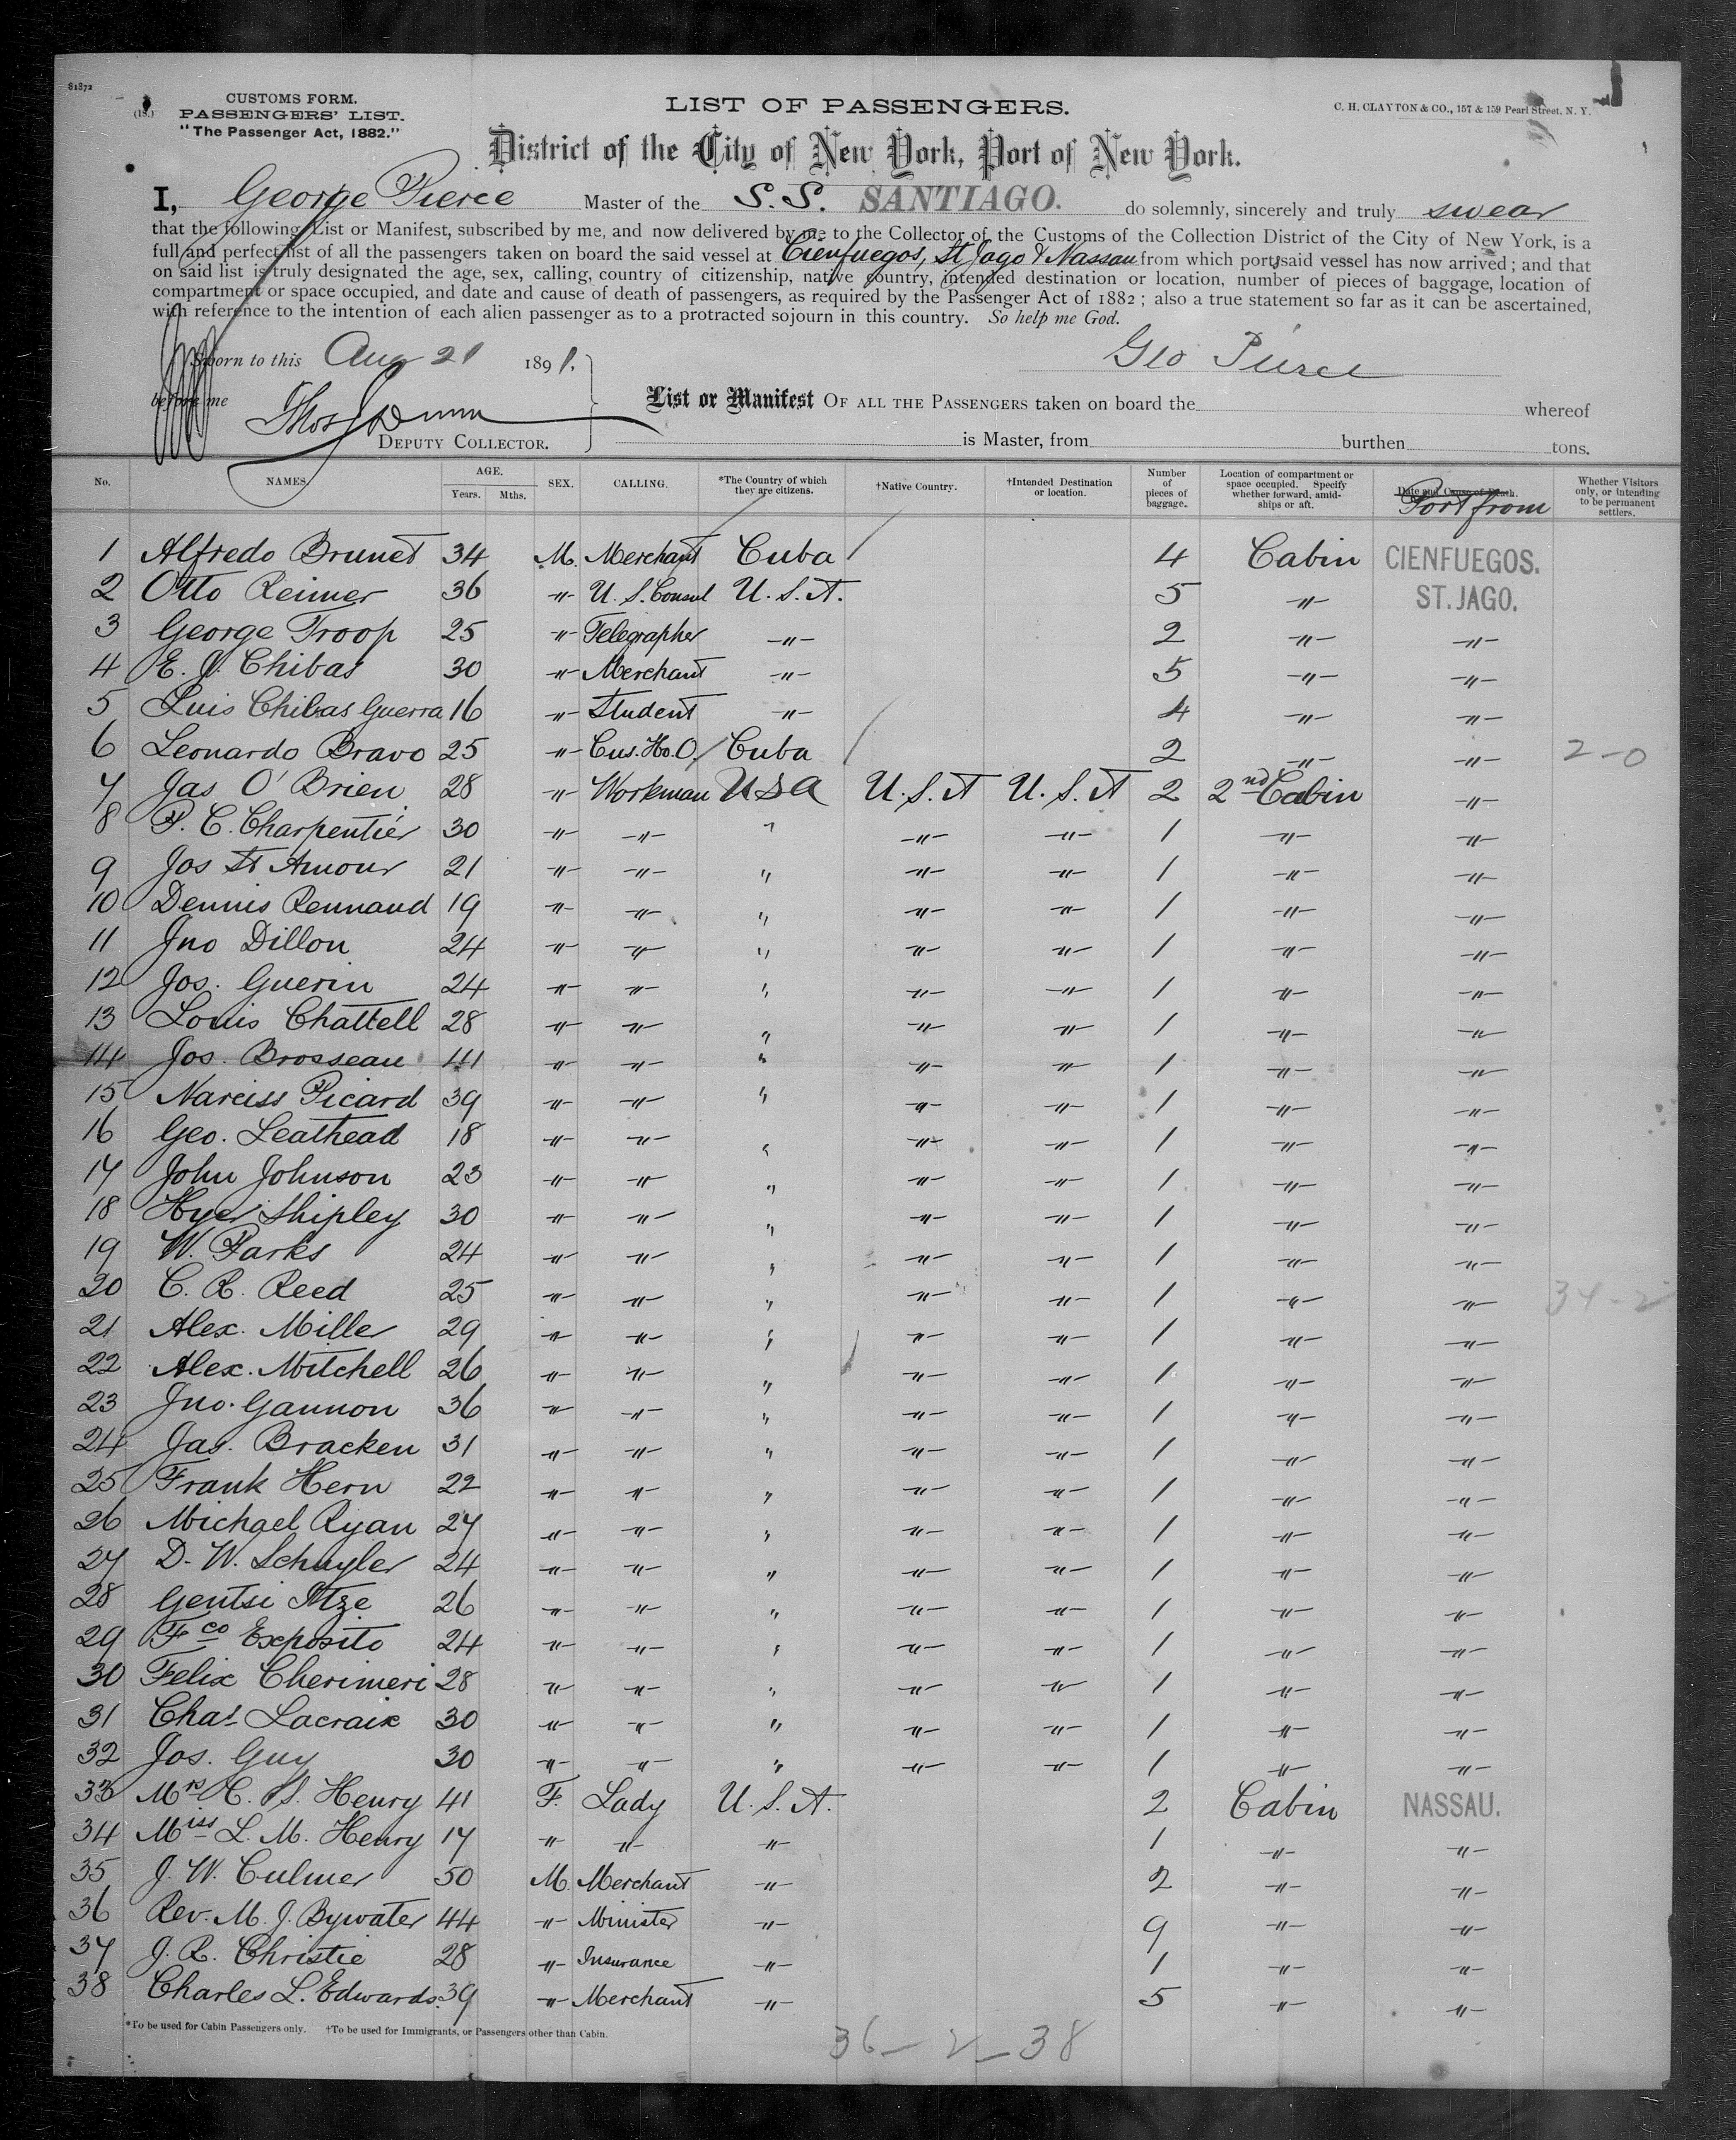 81872
CUSTOMS FORM.
PASSENGERS' LIST.
"The Passenger Act, 1882."
LIST OF PASSENGERS.
C. H. CLAYTON & CO., 157 & 159 Pearl Street, N. Y.
District of the City of New York, Port of New York.
I, George Pierce Master of the S.S. SANTIAGO. do solemnly, sincerely and truly swear
that the following List or Manifest, subscribed by me, and now delivered by me to the Collector of the Customs of the Collection District of the City of New York, is a
full and perfect list of all the passengers taken on board the said vessel at Cienfuegos, St Jago & Nassau from which port, said vessel has now arrived; and that
on said list is truly designated the age, sex, calling, country of citizenship, native country, intended destination or location, number of pieces of baggage, location of
compartment or space occupied, and date and cause of death of passengers, as required by the Passenger Act of 1882; also a true statement so far as it can be ascertained,
with reference to the intention of each alien passenger as to a protracted sojourn in this country. So help me God.
Sworn to this Aug 21 1891.
Geo Pierce
before me
Thos J Dunn
DEPUTY COLLECTOR.
List or Manifest OF ALL THE PASSENGERS taken on board the whereof
is Master, from burthen tons.
No. NAMES. AGE. Years. Mths. SEX. CALLING. *The Country of which they are citizens. †Native Country. †Intended Destination or location. Number of pieces of baggage. Location of compartment or space occupied. Specify whether forward, amidships or aft. Date and Cause of Death. Port from Whether Visitors only, or intending to be permanent settlers.
1 Alfredo Brunet 34 M. Merchant Cuba / 4 Cabin CIENFUEGOS.
2 Otto Reimer 36 " U.S. Consul U.S.A. 5 " ST. JAGO.
3 George Troop 25 " Telegrapher " 2 " "
4 E. J. Chibas 30 " Merchant " 5 " "
5 Luis Chibas Guerra 16 " Student " 4 " "
6 Leonardo Bravo 25 " Cus. Ho. O. / Cuba / 2 " " 2-0
7 Jas O'Brien 28 " Workman USA U.S.A U.S.A 2 2nd Cabin "
8 P. C. Charpentier 30 " " " " " 1 " "
9 Jos St Amour 21 " " " " " 1 " "
10 Dennis Rennaud 19 " " " " " 1 " "
11 Jno Dillon 24 " " " " " 1 " "
12 Jos. Guerin 24 " " " " " 1 " "
13 Louis Chattell 28 " " " " " 1 " "
14 Jos. Brosseau 41 " " " " " 1 " "
15 Narciss Picard 39 " " " " " 1 " "
16 Geo. Leathead 18 " " " " " 1 " "
17 John Johnson 23 " " " " " 1 " "
18 Hyer Shipley 30 " " " " " 1 " "
19 W. Parks 24 " " " " " 1 " "
20 C. R. Reed 25 " " " " " 1 " " 34-2
21 Alex. Miller 29 " " " " " 1 " "
22 Alex. Mitchell 26 " " " " " 1 " "
23 Jno. Gannon 36 " " " " " 1 " "
24 Jas. Bracken 31 " " " " " 1 " "
25 Frank Hern 22 " " " " " 1 " "
26 Michael Ryan 27 " " " " " 1 " "
27 D. W. Schuyler 24 " " " " " 1 " "
28 Gentsi Itze 26 " " " " " 1 " "
29 Fco Exposito 24 " " " " " 1 " "
30 Felix Cherimeri 28 " " " " " 1 " "
31 Chas Lacraix 30 " " " " " 1 " "
32 Jos. Guy 30 " " " " " 1 " "
33 Mrs C. S. Henry 41 F. Lady U.S.A. 2 Cabin NASSAU.
34 Miss L. M. Henry 17 " " " 1 " "
35 J. W. Culmer 50 M. Merchant " 2 " "
36 Rev. M. J. Bywater 44 " Minister " 9 " "
37 J. R. Christie 28 " Insurance " 1 " "
38 Charles L. Edwards. 39 " Merchant " 5 " "
*To be used for Cabin Passengers only. †To be used for Immigrants, or Passengers other than Cabin.
36-2-38